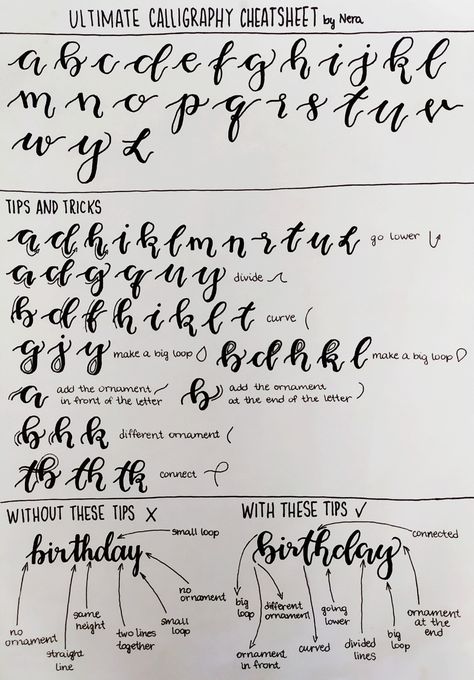 ULTIMATE CALLIGRAPHY CHEATSHEET by Nera
a b c d e f g h i j k l
m n o p q r s t u v
w y z
TIPS AND TRICKS
a d h i k l m n r t u z go lower
a d g q u y divide
b d f h i k l t curve
g j y make a big loop b d h k l make a big loop
a add the ornament in front of the letter b add the ornament at the end of the letter
b h k different ornament
tb th tk connect
WITHOUT THESE TIPS X
birthday
small loop
no ornament
small loop
two lines together
same height
straight line
no ornament
WITH THESE TIPS ✓
birthday
connected
ornament at the end
big loop
divided lines
going lower
curved
different ornament
ornament in front
big loop